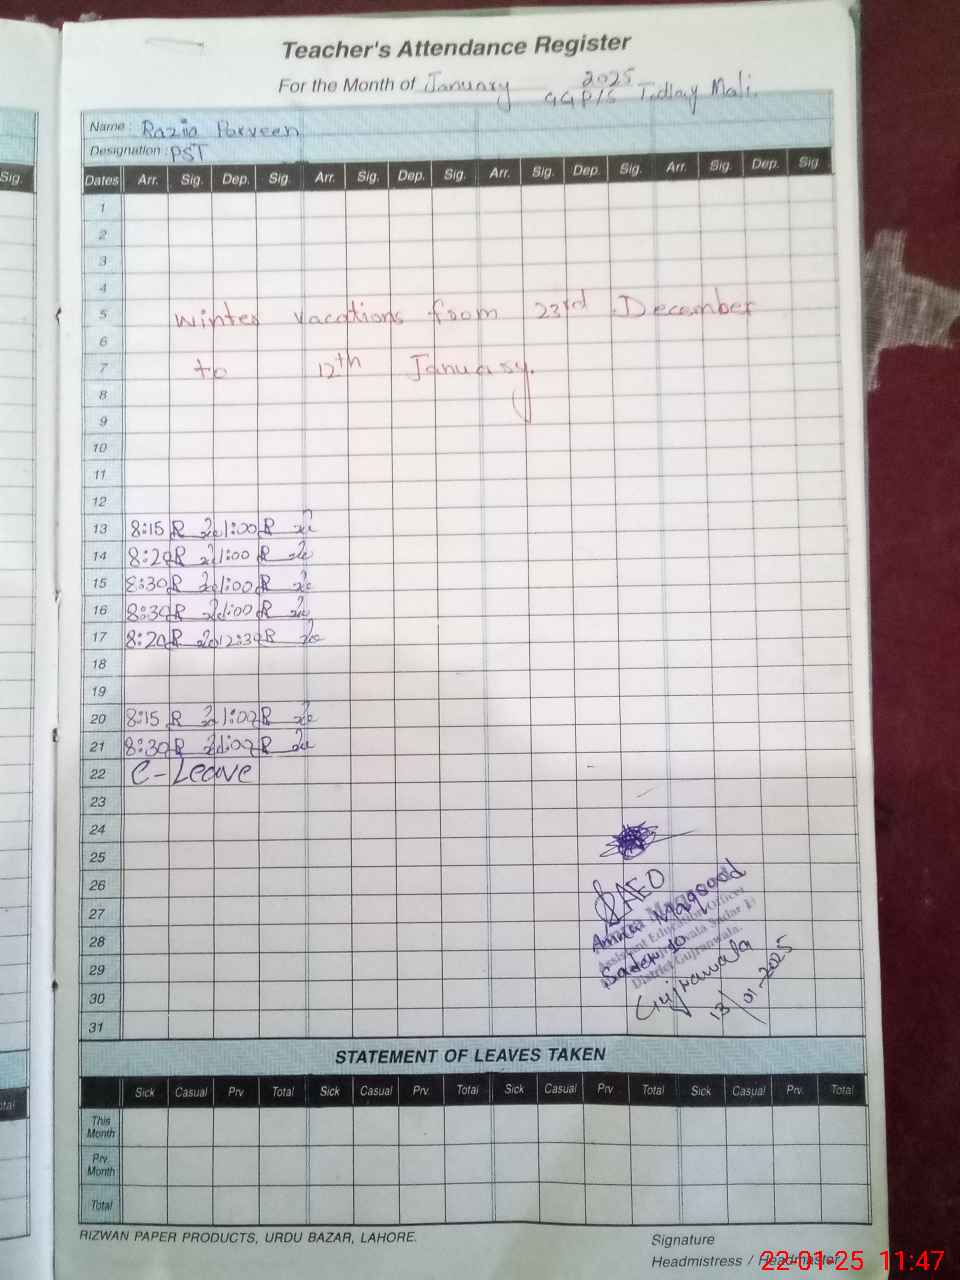 Teacher's Attendance Register
For the Month of January 2025
GGP/S Tidlay Mali.
Name : Razia Parveen
Designation : PST
Sig.
Dates Arr. Sig. Dep. Sig. Arr. Sig. Dep. Sig. Arr. Sig. Dep. Sig. Arr. Sig. Dep. Sig
1
2
3
4
5 winter vacations from 23rd December
6
7 to 12th January.
8
9
10
11
12
13 8:15 R 1:00 R
14 8:20 R 1:00 R
15 8:30 R 1:00 R
16 8:30 R 1:00 R
17 8:20 R 12:30 R
18
19
20 8:15 R 1:00 R
21 8:30 R 1:00 R
22 C-Leave
23
24
25
26 AEO
27 Maqsood
Assistant Education Officer
28
29 District Gujranwala.
30 Gujranwala
31 13/01-2025
STATEMENT OF LEAVES TAKEN
Sick Casual Prv. Total Sick Casual Prv. Total Sick Casual Prv. Total Sick Casual Prv. Total
This Month
Prv. Month
Total
RIZWAN PAPER PRODUCTS, URDU BAZAR, LAHORE.
Signature
Headmistress / Headmaster
22-01-25 11:47